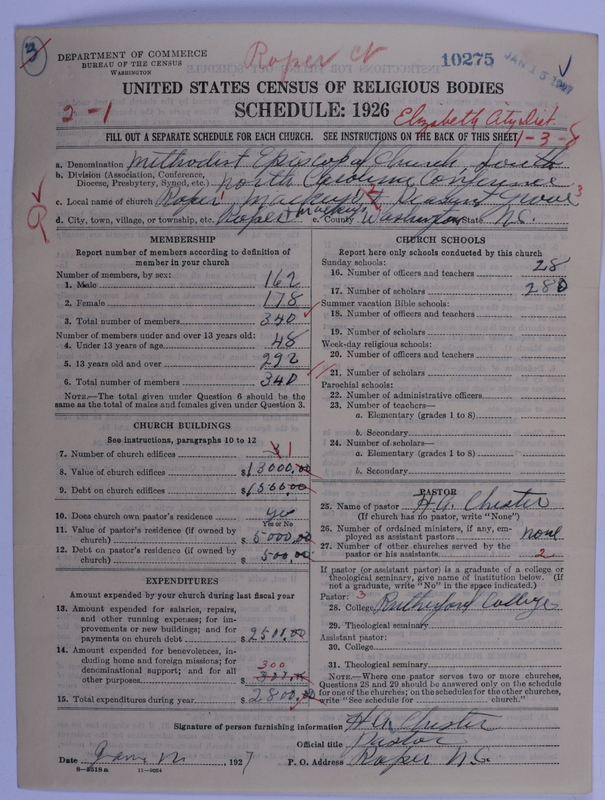 3
DEPARTMENT OF COMMERCE
BUREAU OF THE CENSUS
WASHINGTON
Roper Ct
10275
JAN 15 1927
UNITED STATES CENSUS OF RELIGIOUS BODIES
2-1
SCHEDULE: 1926
Elizabeth City Dist.
FILL OUT A SEPARATE SCHEDULE FOR EACH CHURCH. SEE INSTRUCTIONS ON THE BACK OF THIS SHEET
1-3-8
a. Denomination Methodist Episcopal Church South
b. Division (Association, Conference, Diocese, Presbytery, Synod, etc.) North Carolina Conference
c. Local name of church Roper, Mackeys & Pleasant Grove 3
d. City, town, village, or township, etc. Roper + Mackeys e. County Washington State N.C.
MEMBERSHIP
Report number of members according to definition of member in your church
Number of members, by sex:
1. Male 162
2. Female 178
3. Total number of members 340
Number of members under and over 13 years old:
4. Under 13 years of age 48
5. 13 years old and over 292
6. Total number of members 340
NOTE.—The total given under Question 6 should be the same as the total of males and females given under Question 3.
CHURCH BUILDINGS
See instructions, paragraphs 10 to 12
7. Number of church edifices 3 1
8. Value of church edifices $13000.00
9. Debt on church edifices $1500.00
10. Does church own pastor's residence yes
Yes or No
11. Value of pastor's residence (if owned by church) $5000.00
12. Debt on pastor's residence (if owned by church) $500.00
EXPENDITURES
Amount expended by your church during last fiscal year
13. Amount expended for salaries, repairs, and other running expenses; for improvements or new buildings; and for payments on church debt $2500.00
14. Amount expended for benevolences, including home and foreign missions; for denominational support; and for all other purposes $ 300
15. Total expenditures during year $2800.00
CHURCH SCHOOLS
Report here only schools conducted by this church
Sunday schools:
16. Number of officers and teachers 28
17. Number of scholars 280
Summer vacation Bible schools:
18. Number of officers and teachers
19. Number of scholars
Week-day religious schools:
20. Number of officers and teachers
21. Number of scholars
Parochial schools:
22. Number of administrative officers
23. Number of teachers—
a. Elementary (grades 1 to 8)
b. Secondary
24. Number of scholars—
a. Elementary (grades 1 to 8)
b. Secondary
PASTOR
25. Name of pastor H.A. Chester
(If church has no pastor, write "None")
26. Number of ordained ministers, if any, employed as assistant pastors none
27. Number of other churches served by the pastor or his assistants 2
If pastor (or assistant pastor) is a graduate of a college or theological seminary, give name of institution below. (If not a graduate, write "No" in the space indicated.)
Pastor: 3
28. College Rutherford College
29. Theological seminary
Assistant pastor:
30. College
31. Theological seminary
NOTE.—Where one pastor serves two or more churches, Questions 28 and 29 should be answered only on the schedule for one of the churches; on the schedules for the other churches, write "See schedule for church."
Signature of person furnishing information H.A. Chester
Official title Pastor
Date 1927 P. O. Address Roper N.C.
8-5518a 11-9024